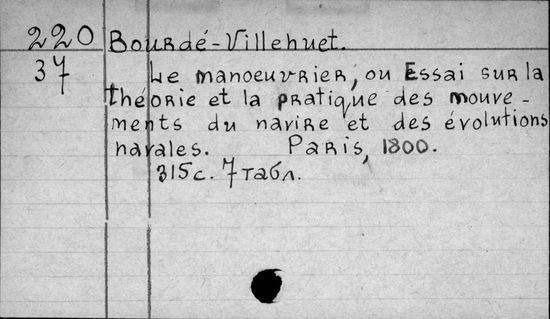 220 Bourdé-Villehuet.
37 Le manoeuvrier, ou Essai sur la
théorie et la pratique des mouve-
ments du navire et des évolutions
navales. Paris, 1800.
315с. 7 табл.